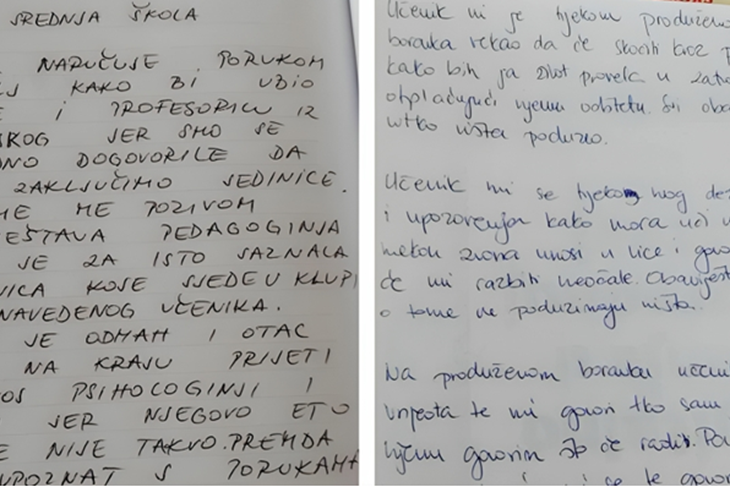 SREDNJA ŠKOLA
NARUČUJE PORUKOM
KAKO BI UBIO
I PROFESORICU IZ
SKOG JER SMO SE
DNO DOGOVORILE DA
ZAKLJUČIMO JEDINICE.
ME ME POZIVOM
JEŠTAVA PEDAGOGINJA
JE ZA ISTO SAZNALA
NICA KOJE SJEDE U KLUPI
NAVEDENOG UČENIKA.
JE ODMAH I OTAC
NA KRAJU PRIJETI
JOŠ PSIHOLOGINJI I
JER NJEGOVO ETO
E NIJE TAKVO. PREMDA
UPOZNAT S PORUKAMA
Učenik mi je tijekom produženo
boravka rekao da će skočiti kroz p
kako bih ja život provela u zatv
otplaćujući njemu odštetu. Svi oba
nitko ništa poduzeo.
Učenik mi se tijekom mog dež
i upozorenja kako mora ući u
nakon zvona unosi u lice i govo
će mi razbiti neočale. Obavijest
o tome ne poduzimaju ništa.
Na produženom boravku učeni
unjeota te mi govori tko sam
njemu govorim što će raditi. Pon
i se te govor